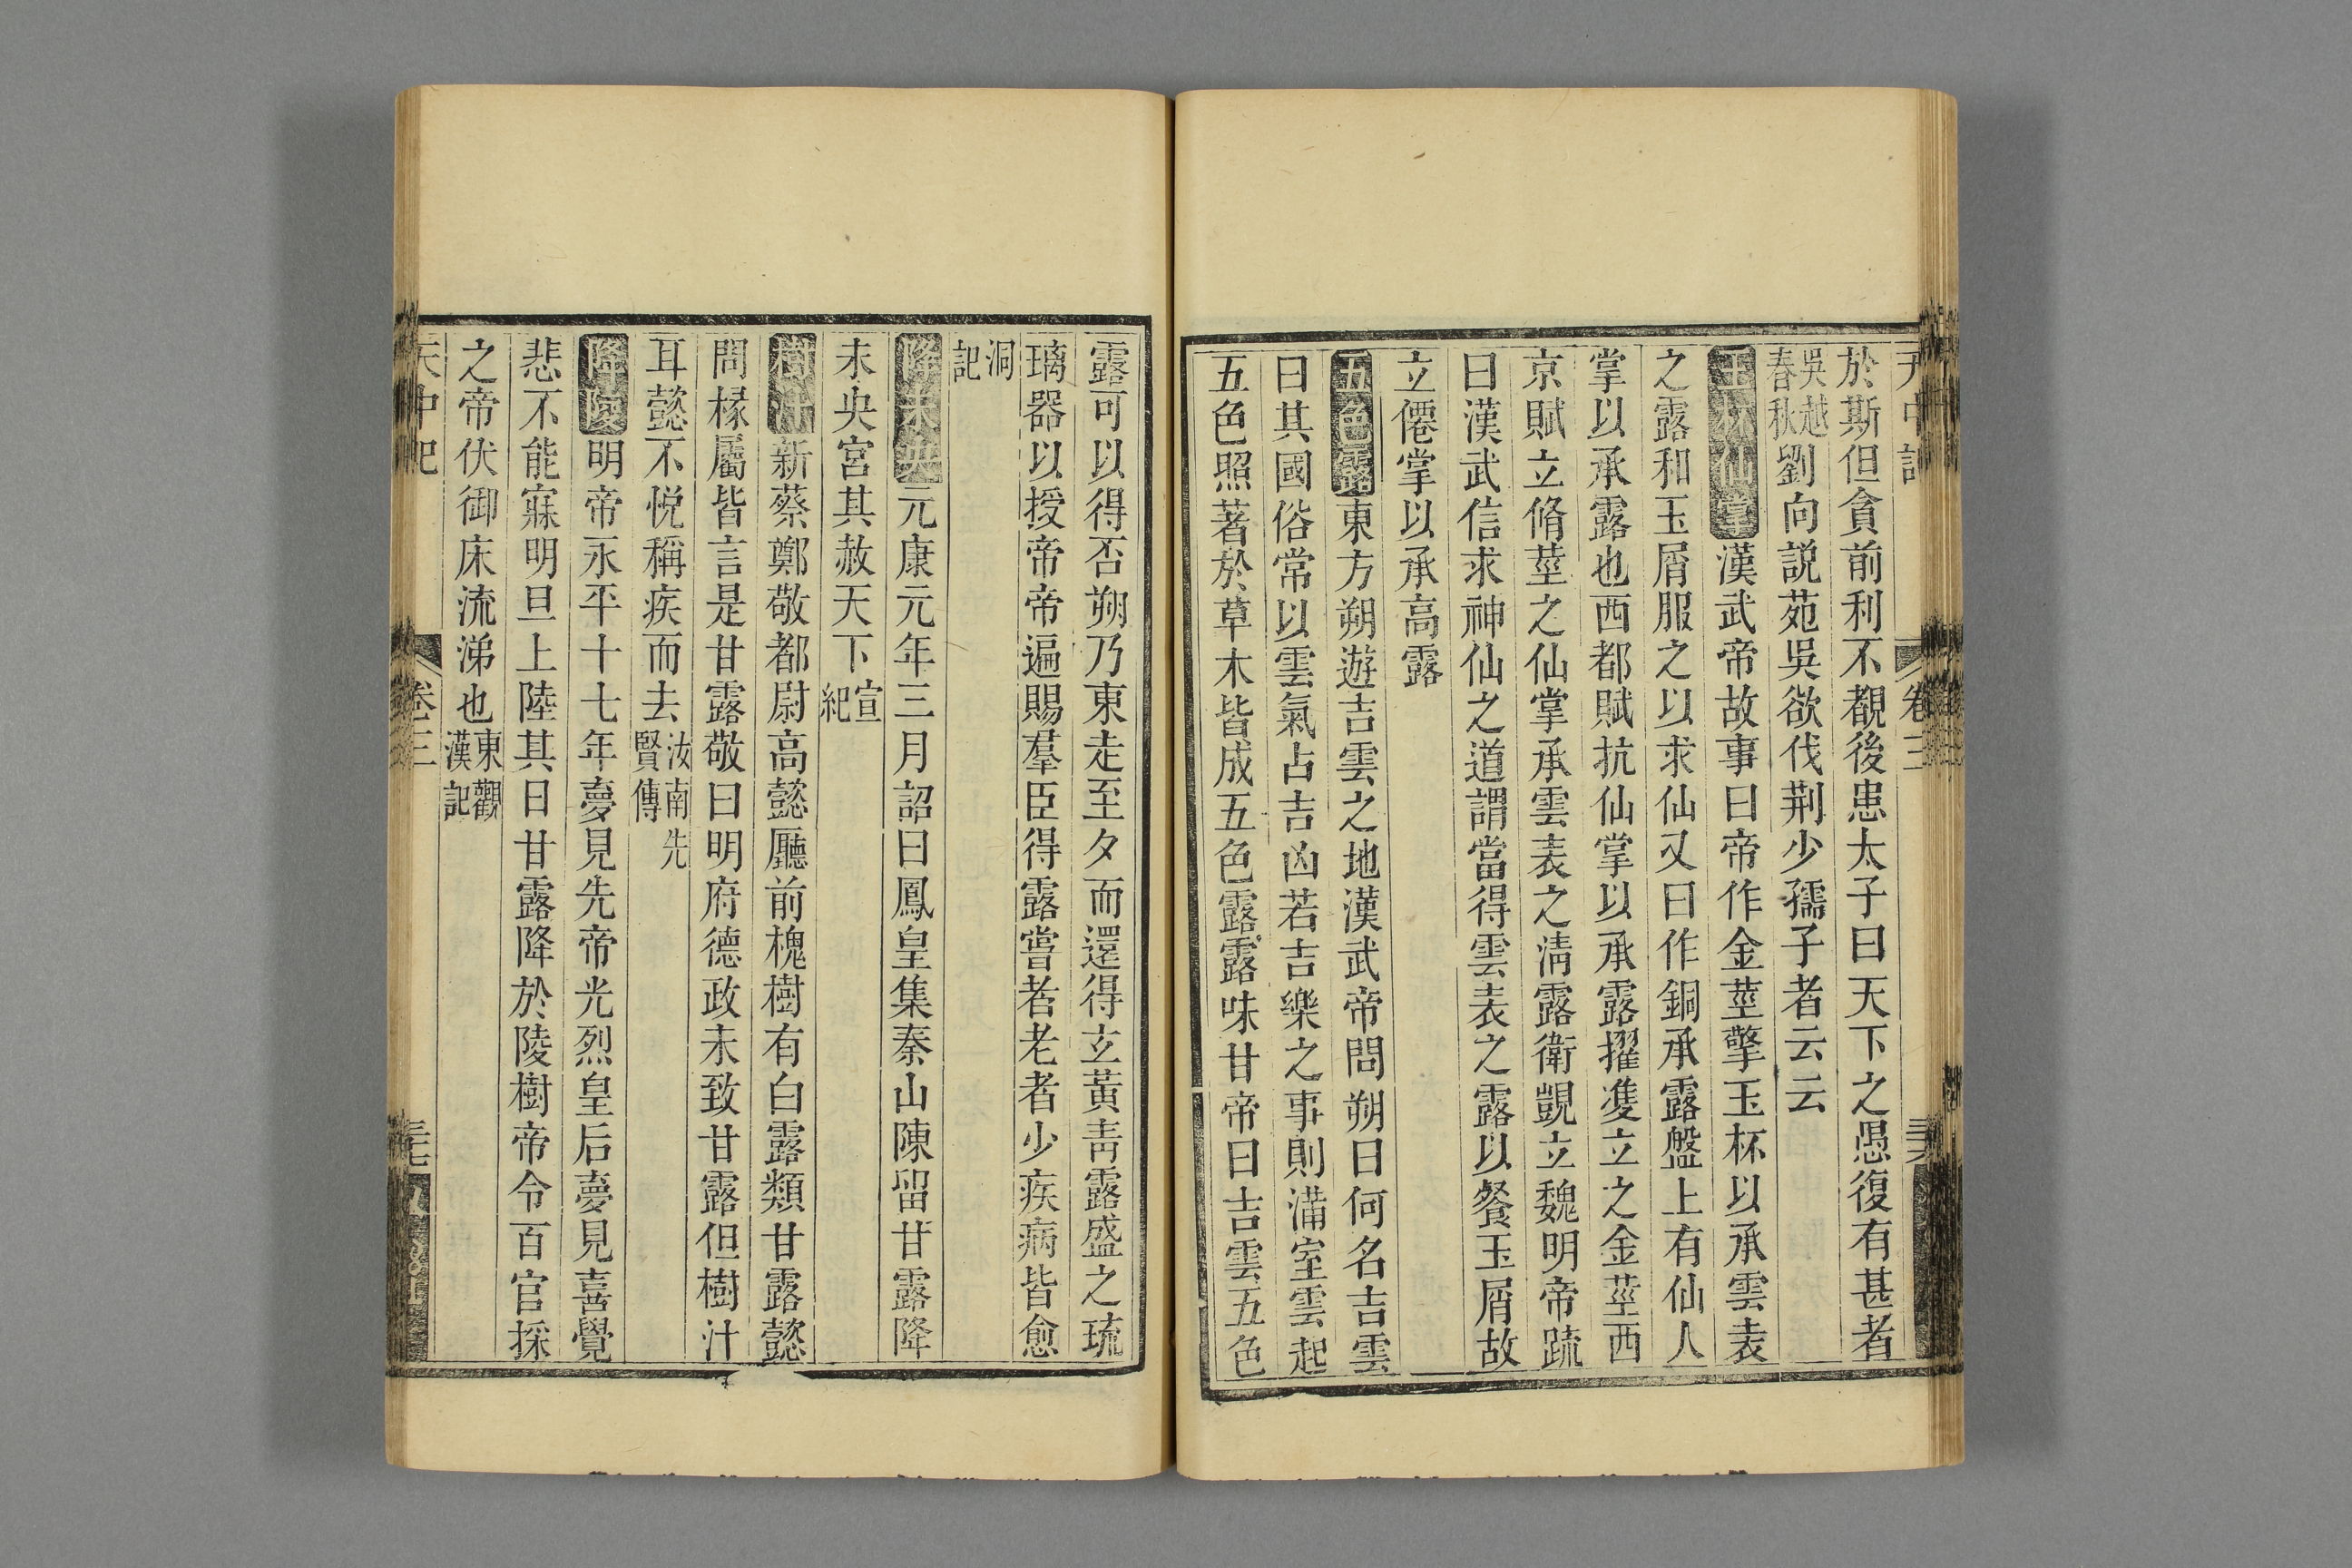 天中記 卷三 三十六
於斯但貪前利不覩後患太子曰天下之愚復有甚者
吳越春秋劉向説苑吳欲伐荆少孺子者云云
玉杯仙掌漢武帝故事曰帝作金莖擎玉杯以承雲表
之露和玉屑服之以求仙又曰作銅承露盤上有仙人
掌以承露也西都賦抗仙掌以承露擢雙立之金莖西
京賦立脩莖之仙掌承雲表之淸露衛覬立魏明帝䟽
曰漢武信求神仙之道謂當得雲表之露以餐玉屑故
立僊掌以承高露
五色露東方朔遊吉雲之地漢武帝問朔曰何名吉雲
曰其國俗常以雲氣占吉凶若吉樂之事則滿室雲起
五色照著於草木皆成五色露露味甘帝曰吉雲五色
露可以得否朔乃東走至夕而還得玄黃靑露盛之琉
璃器以授帝帝遍賜羣臣得露嘗者老者少疾病皆愈
洞記
降未央元康元年三月詔曰鳳皇集泰山陳留甘露降
未央宮其赦天下宣紀
樹汁新蔡鄭敬都尉高懿廳前槐樹有白露類甘露懿
問掾屬皆言是甘露敬曰明府德政未致甘露但樹汁
耳懿不悅稱疾而去汝南先賢傳
降陵明帝永平十七年夢見先帝光烈皇后夢見喜覺
悲不能寐明旦上陵其日甘露降於陵樹帝令百官採
之帝伏御床流涕也東觀漢記
天中記 卷三 三十七